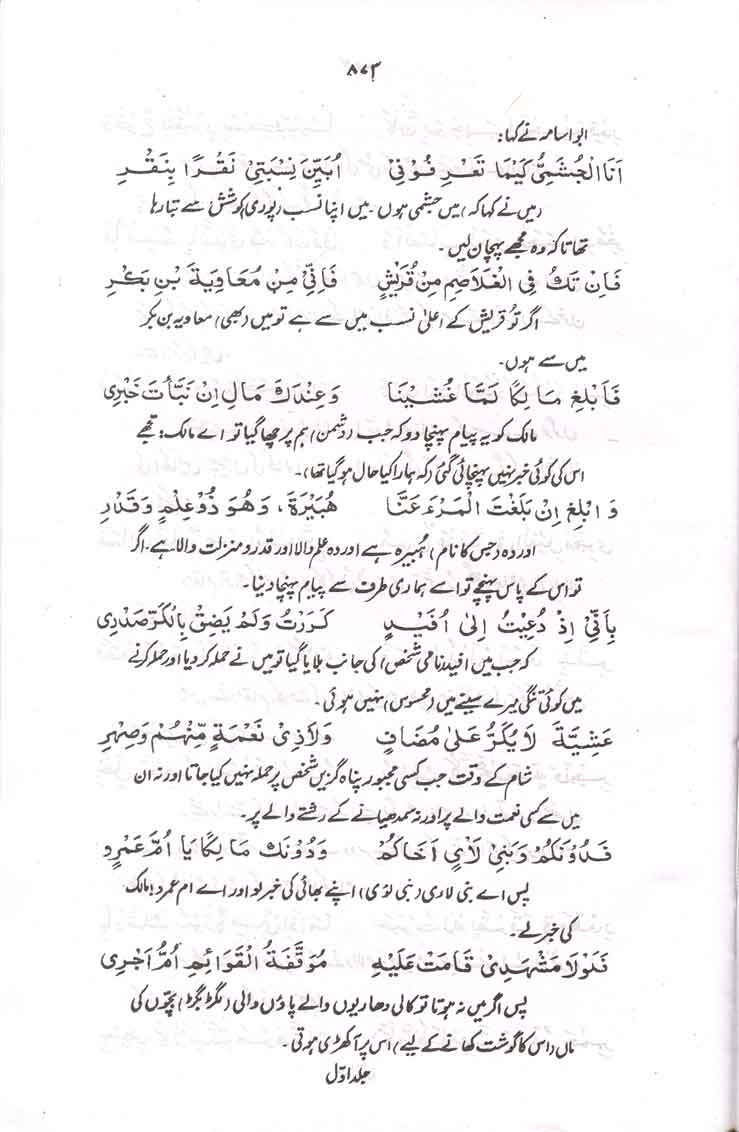 ۸۷۳
ابو اسامہ نے کہا:
اَنَا الْجُشَمِیُّ کَیْمَا تَعْرِفُوْنِیْ اُبَیِّنُ نِسْبَتِیْ نَقْرًا بِنَقْرٍ
(میں نے کہا کہ) میں جشمی ہوں۔ میں اپنا نسب (پوری) کوشش سے بتا رہا
تھا تا کہ وہ مجھے پہچان لیں۔
فَاِنْ تَکُ فِی الْغَلَاصِمِ مِنْ قُرَیْشٍ فَاِنِّیْ مِنْ مُعَاوِیَةَ بْنِ بَکْرٍ
اگر تو قریش کے اعلیٰ نسب میں سے ہے تو میں (بھی) معاویہ بن بکر
میں سے ہوں۔
فَاَبْلِغْ مَالِکًا لَمَّا غُشِیْنَا وَعِنْدَکَ مَالِ اِنْ نَبَّأْتَ خَبْرِیْ
مالک کو یہ پیام پہنچا دو کہ جب (دشمن) ہم پر چھا گیا تو اے مالک! تجھے
اس کی کوئی خبر نہیں پہنچائی گئی (کہ ہمارا کیا حال ہو گیا تھا)۔
وَ ابْلِغْ اِنْ بَلَغْتَ الْمَرْءَ عَنَّا هُبَیْرَةَ، وَهُوَ ذُوْ عِلْمٍ وَّقَدْرِ
اور وہ (جس کا نام) ہبیرہ ہے اور وہ علم والا اور قدر و منزلت والا ہے۔ اگر
تو اس کے پاس پہنچے تو اسے ہماری طرف سے پیام پہنچا دینا۔
بِاَنِّیْ اِذْ دُعِیْتُ اِلٰی اُفَیْدٍ کَرَرْتُ وَلَمْ یَضِقْ بِالْکَرِّ صَدْرِیْ
کہ جب میں افید (نامی شخص) کی جانب بلایا گیا تو میں نے حملہ کر دیا اور حملہ کرنے
میں کوئی تنگی میرے سینے میں (محسوس) نہیں ہوئی۔
عَشِیَّةَ لَا یُکَرُّ عَلٰی مُضَافٍ وَلَا ذِیْ نَعْمَةٍ مِّنْهُمْ وَصِهْرِ
شام کے وقت جب کسی مجبور پناہ گزیں شخص پر حملہ نہیں کیا جاتا اور نہ ان
میں سے کسی نعمت والے پر اور نہ سمدھیانے کے رشتے والے پر۔
فَدُوْنَکُمْ وَبَنِیْ لَاْیٍ اَخَاکُمْ وَدُوْنَکِ مَالِکًا یَا اُمَّ عَمْرٍو
پس اے بنی لاری (بنی لوی) اپنے بھائی کی خبر لو اور اے ام عمرو! مالک
کی خبر لے۔
فَلَوْلَا مَشْهَدِیْ قَامَتْ عَلَیْهِ مُوَقَّفَةُ الْقَوَائِمِ اُمُّ اَجْرِیْ
پس اگر میں نہ ہوتا تو کالی دھاریوں والے پاؤں والی (لگڑ بگڑ) بچوں کی
ماں (اس کا گوشت کھانے کے لیے) اس پر آ کھڑی ہوتی۔
جلد اوّل